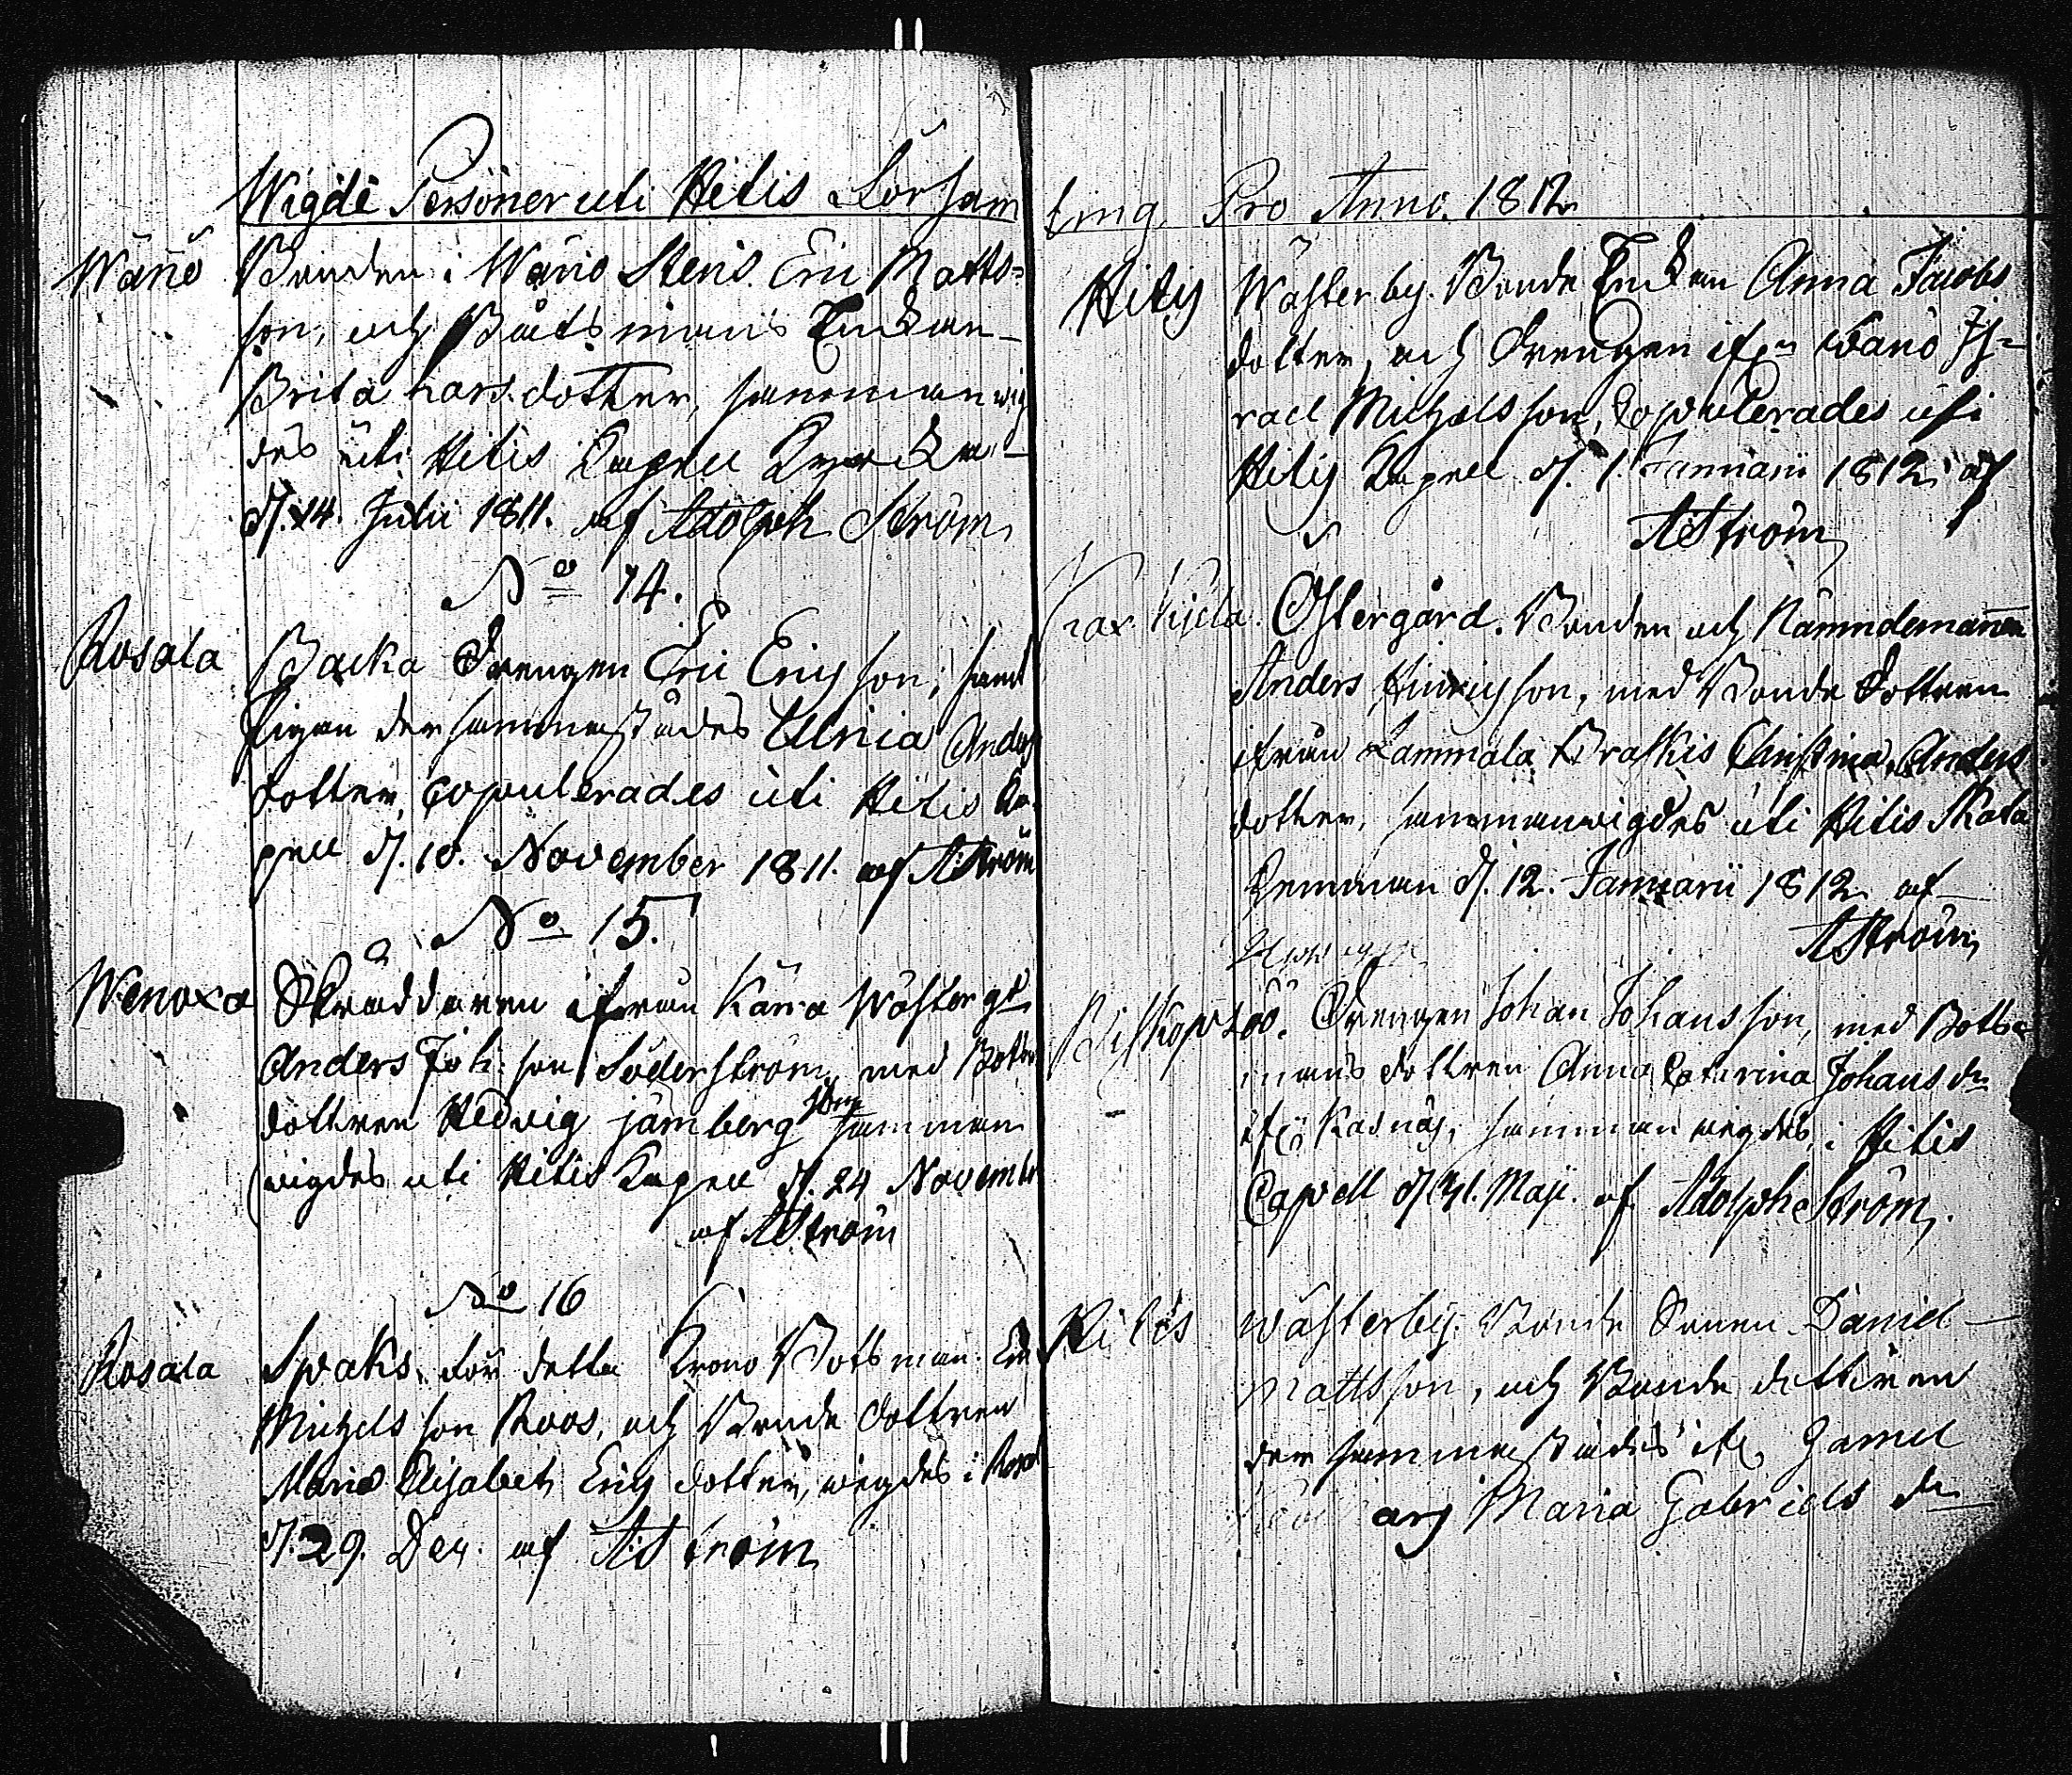 Wigde Personer uti Hitis Församling Pro Anno. 1812
Wänö
Bonden i Wänö Stens. Eric Matts=
son, och Båtsmans Enkan
Brita Larsdotter, sammanwig
des uti Hitis Capell Kyrcka
d. 14. Julii 1811. af Adolph Ström
No 14.
Rosala
Backa Drengen Eric Ericsson, samt
Pigan dersammastädes Ulrica Anders
dotter, Copulerades uti Hitis Ka
pell d. 10. November 1811. af A Ström
No 15.
Wenoxa
Skräddaren ifrån Kärra Wästergd
Anders Joh:son Söderström, med Botsm
dottren Hedvig Jernberg som samman
wigdes uti Hitis Kapell d. 24 Novembr
af A Ström
No 16
Rosala
Spaks. för detta Krono Botsman Eric
Michelsson Roos, och Bonde dottren
Maria Elisabet Erics dotter, wigdes i Rosal
d. 29. Dec. af A Ström
Hitis
Wästerby. Bonde Enkan Anna Jacobs
dotter, och Drengen ifrn Wänö Is=
rael Michelsson, Copulerades uti
Hitis Kapell d. 1. Januarii 1812 af
A Ström
Kyla. Östergård. Bonden och Nämndemannen
Anders Henricsson, med Bonde Dottren
ifrån Lammala Braskis Christina Anders
dotter, sammanwigdes uti Hitis Skata
Remman d. 12. Januarii 1812 af
A Ström
Biskopsöö. Drengen Johan Johansson, med Bots
mans dottren Anna Caterina Johans dr
ifr Kasnäs, sammanwigdes i Hitis
Capell d. 31. Maji. af Adolph Ström.
Hitis
Wästerby. Bonde Sonen Daniel
Mattsson, och Bonde dottren
dersammastädes ifr Gamel
Maria Gabriels dr